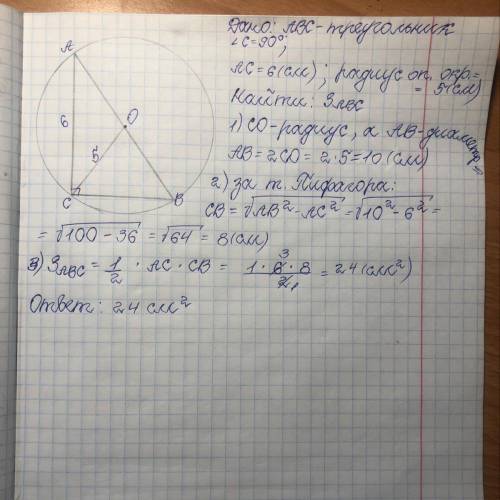 Дано: ABC-треугольник
∠C=90°;
AC=6(см); радиус оп. окр.=
= 5(см)
Найти: SABC
1) CO-радиус, а AB-диаметр ⇒
AB=2CO=2·5=10(см)
2) за т. Пифагора:
CB=√AB²-AC²=√10²-6²=
=√100-36=√64=8(см)
3) SABC=1/2·AC·CB=1·6·8/2=24(см²)
Ответ: 24 см²
A
O
6
5
C
B
3
1